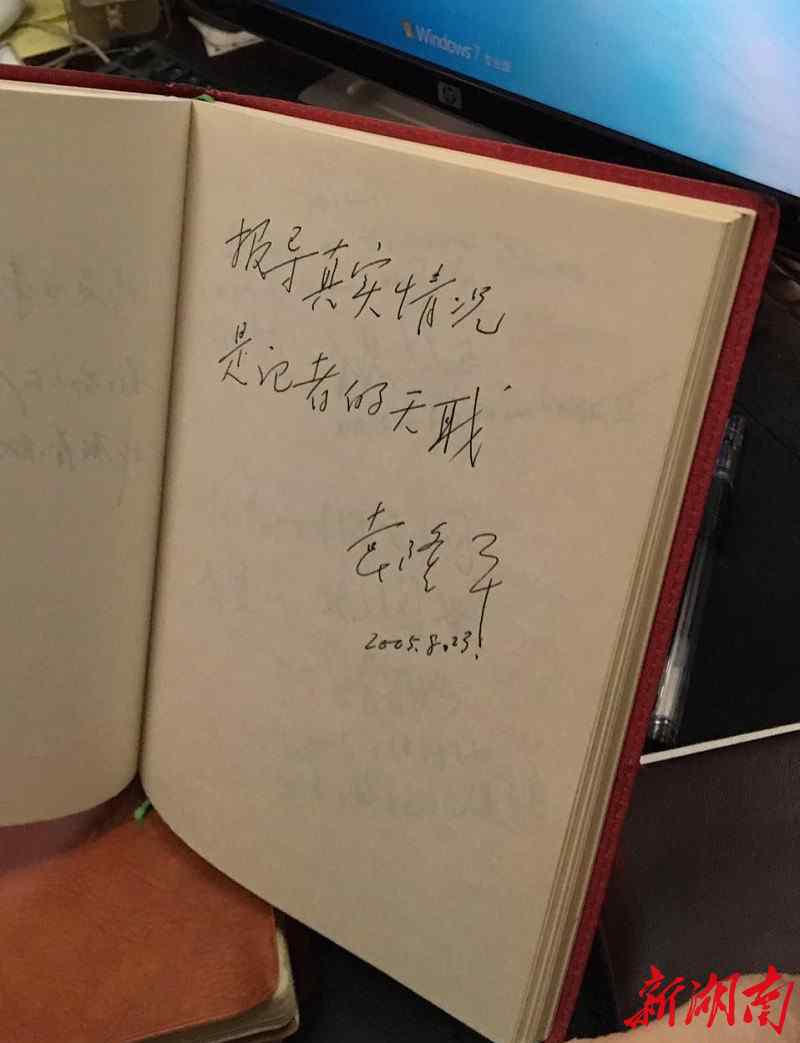 Windows 7 专业版
hp
报导真实情况
是记者的天职
袁隆平
2005.8.23.
新湖南